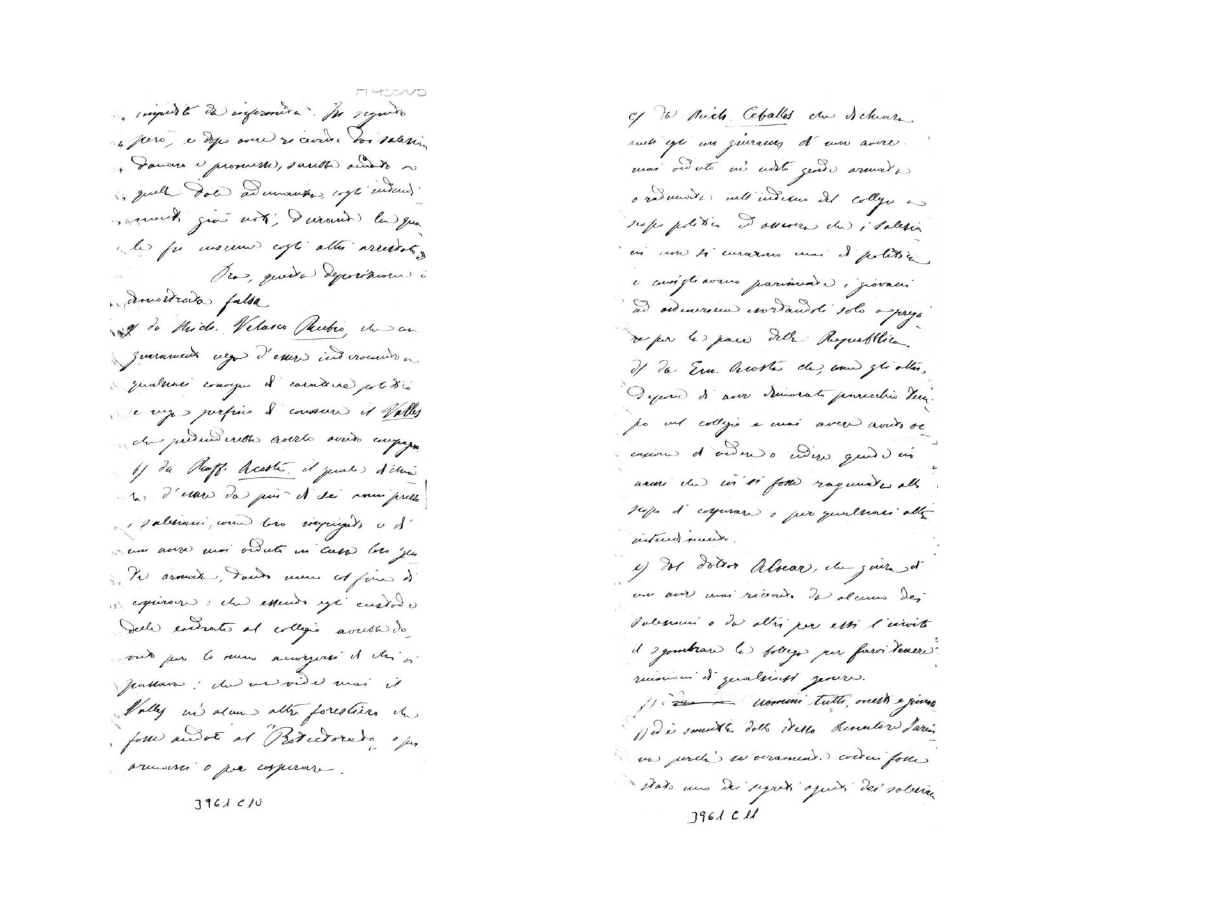 impedito da infermità. In seguito
però, e dopo avere ricevuto dai salesiani
danaro e promesse, sarebbe andato a
quella adunanza, cogli intendi-
menti già noti, durante la qua-
le fu insieme cogli altri arrestato
Ora, questa deposizione è
dimostrata falsa
a) da Mich. Velasco Rubio, che con
giuramento nega d'essere intervenuto a
qualsiasi convegno di carattere politico
e nega perfino di conoscere il Valles
che pretenderebbe averlo avuto compagno
b) da Raff. Acosta, il quale dichia-
ra d'essere da più di sei anni presso
i salesiani, come loro impiegato e di
non avere mai veduto in casa loro gen-
te armata, tanto meno col fine di
cospirare: che essendo egli custode
delle entrate al collegio avrebbe do-
vuto per lo meno accorgersi di chi vi
passava: che non vide mai il
Valles nè alcun altro forestiero che
fosse andato al "Protectorado" o per
armarsi o per cospirare.
3961 C10
c) da Mich. Ceballos che dichiara
anche egli con giuramento di non avere
mai veduto nè udito gente armata
o radunata nell'interno del collegio a
scopo politico ed assevera che i salesia-
ni non si curarono mai di politica
e consigliavano parimente i giovani
ad astenersene esortandoli solo a prega-
re per la pace della Repubblica.
d) da Em. Acosta che, come gli altri,
depone di aver dimorato parecchio tem-
po nel collegio e mai avere avuto oc-
casione di vedere o udire gente in
armi che ivi si fosse ragunata allo
scopo di cospirare o per qualsiasi altro
intendimento.
e) dal dottor Alvear, che giura di
non aver mai ricevuto da alcuno dei
salesiani o da altri per essi l'invito
di sgombrare la bottega per farvi tenere
riunioni di qualsiasi genere.
uomini tutti, onesti e
f) ed è smentita dallo stesso Senatore
un perchè se veramente costui fosse
stato uno dei segreti agenti dei salesiani
3961 C11